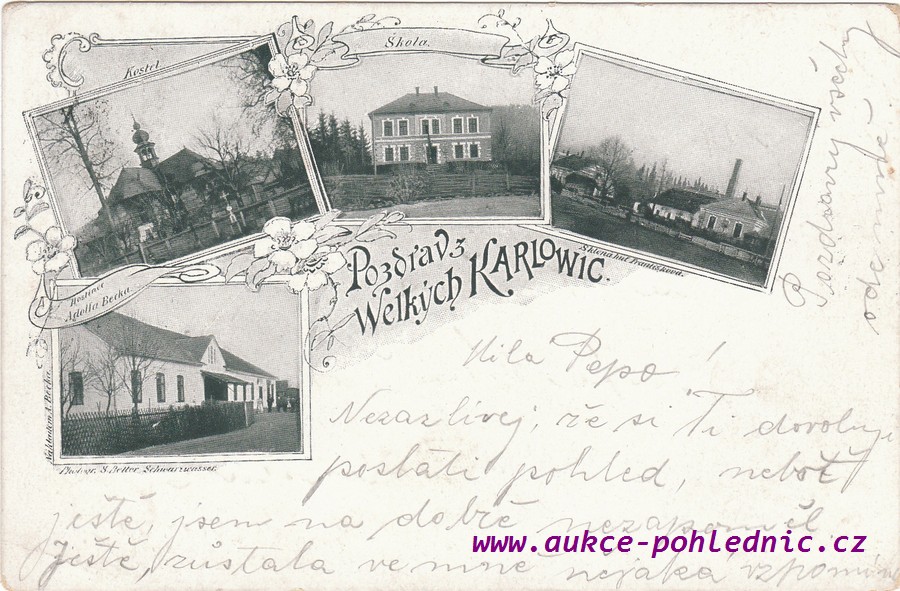 Kostel.
Škola.
Sklená huť Františkova.
Pozdrav z
Welkých KARLOWIC.
Hostinec
Adolfa Becka.
Nákladem A. Becka.
Photogr. S. Better Schwarzwasser.
Milá Pepo!
Nezazlívej, že si Ti dovoluji
poslati pohled, neboť
ještě, jsem na dobré nezapoměl
Ještě, zůstala ve mně nějaká vzpomín
Pozdravy všechny
ode mně
www.aukce-pohlednic.cz